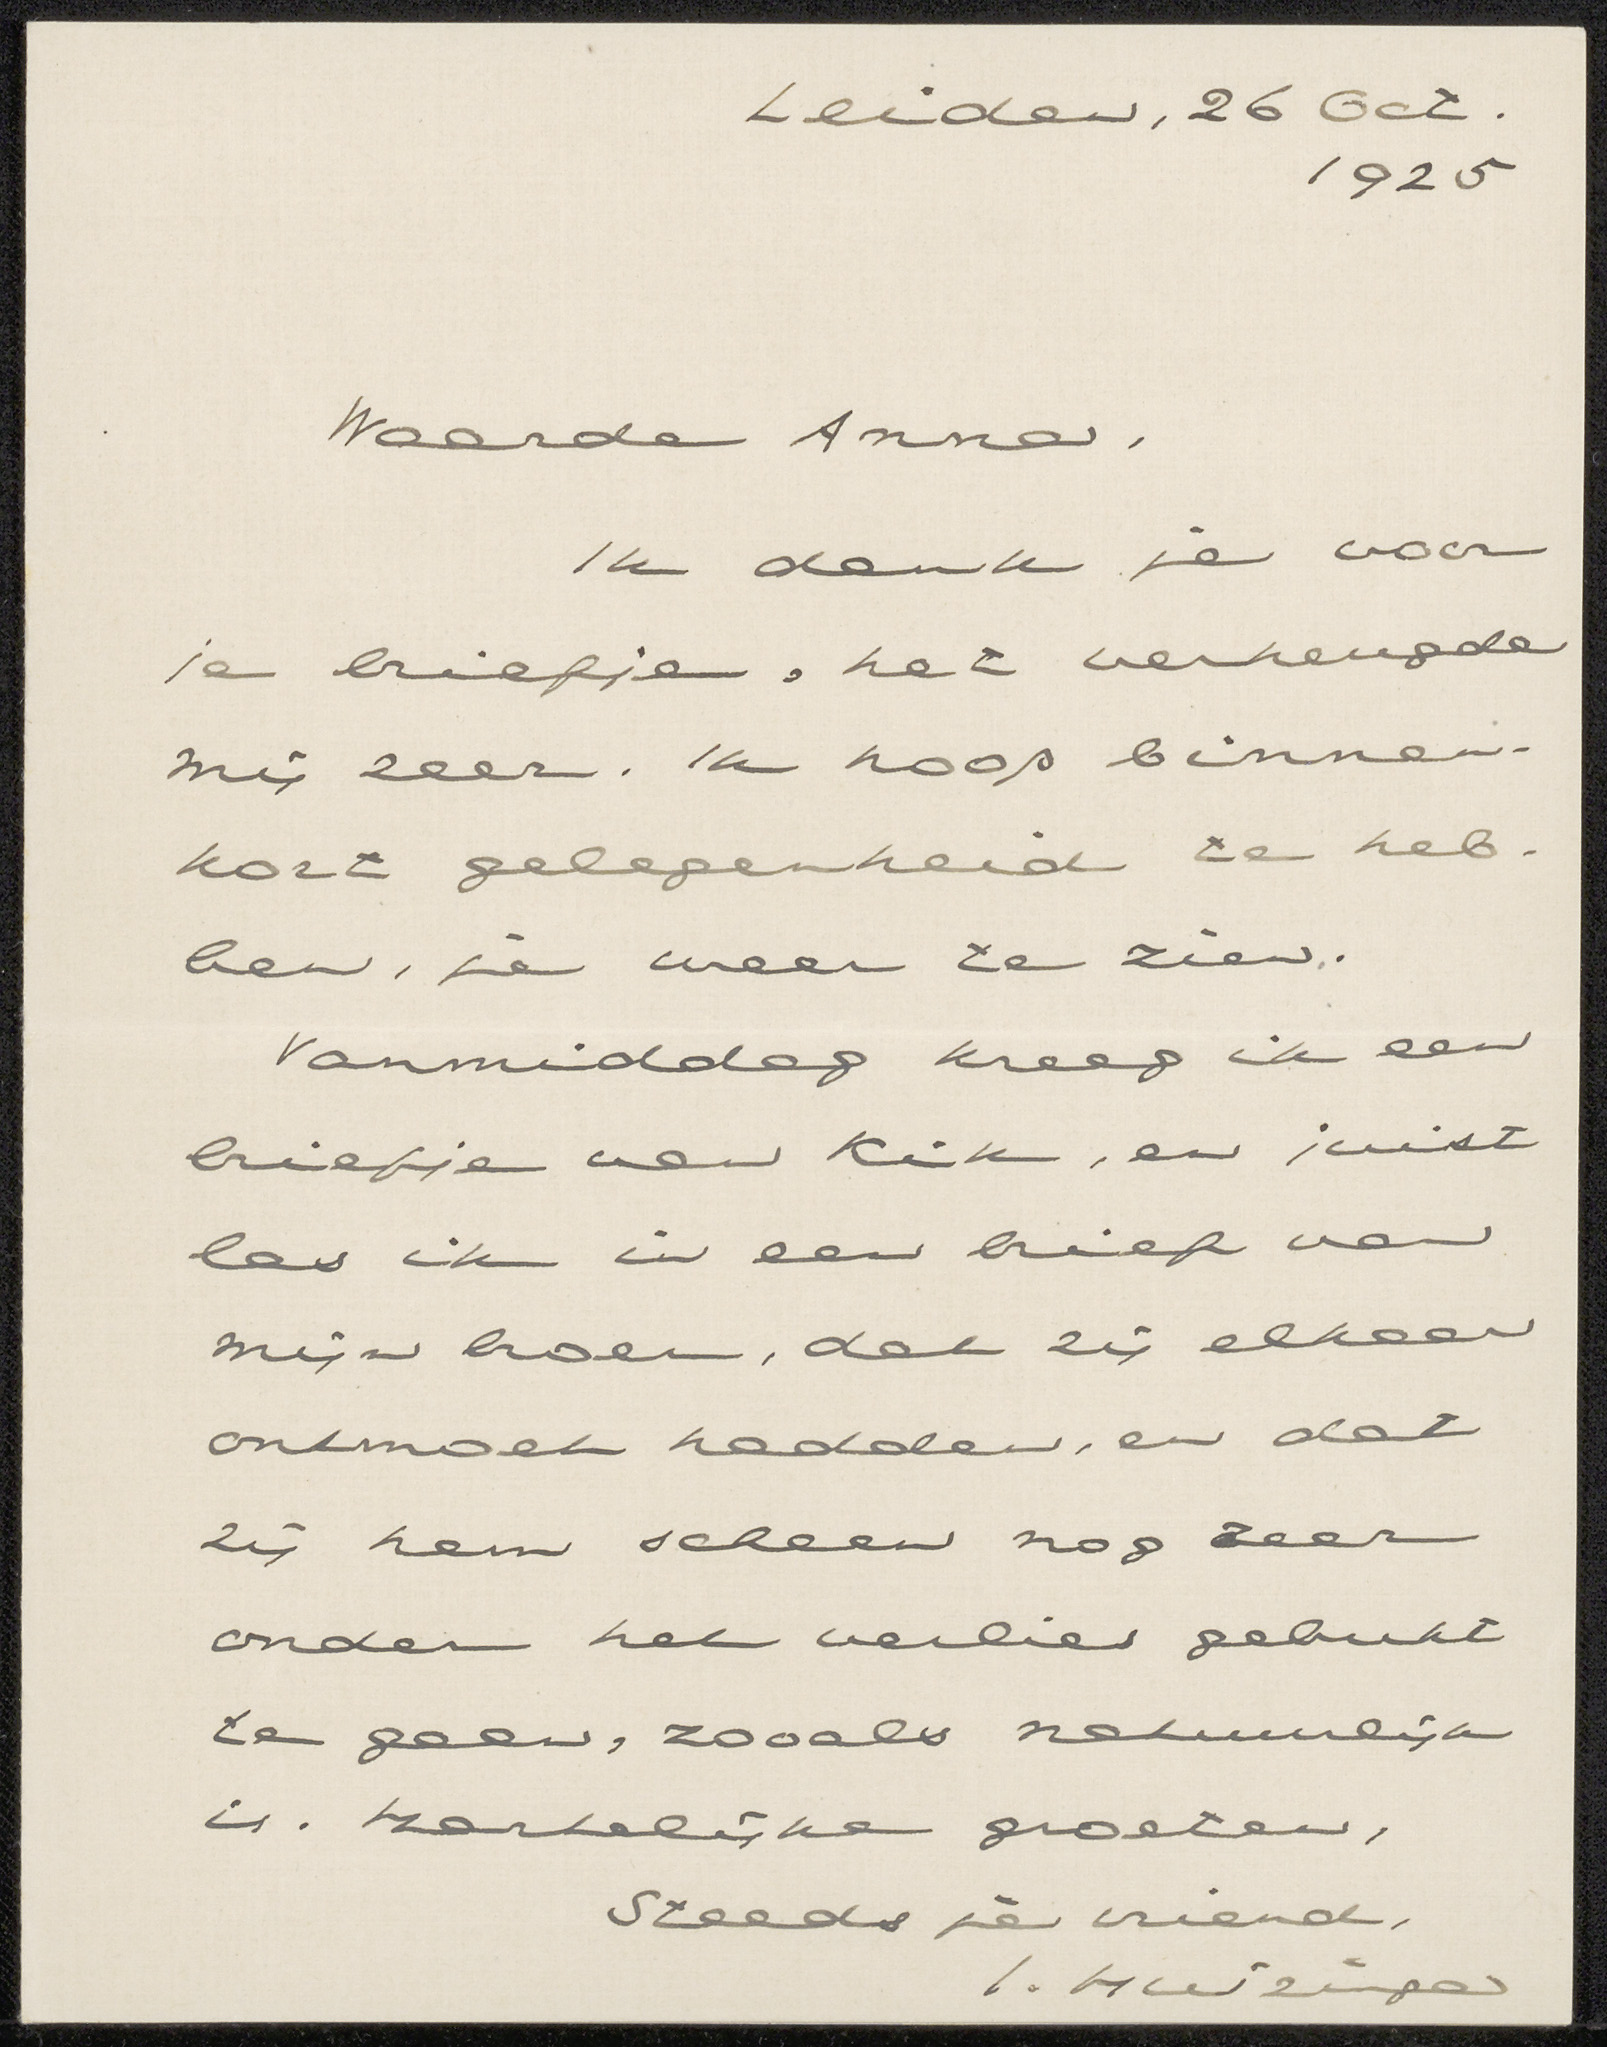 Leiden, 26 Oct.
1925
Waarde Anna,
Ik dank je voor
je briefje, het verheugde
mij zeer. Ik hoop binnen-
kort gelegenheid te heb-
ben, je weer te zien.
Vanmiddag kreeg ik een
briefje van Kik, en juist
las ik in een brief van
mijn broer, dat zij elkaar
ontmoet hadden, en dat
zij hem scheen nog zeer
onder het verlies gebukt
te gaan, zooals natuurlijk
is. Hartelijke groeten,
Steeds je vriend,
J. Huizinga